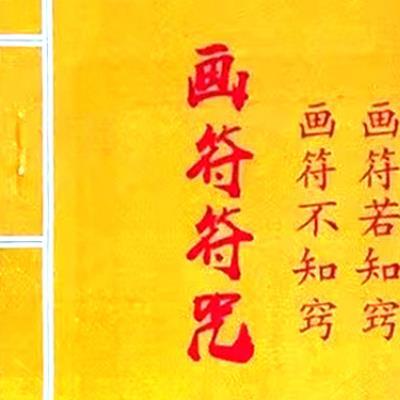 画符若知窍
画符不知窍
画符符咒